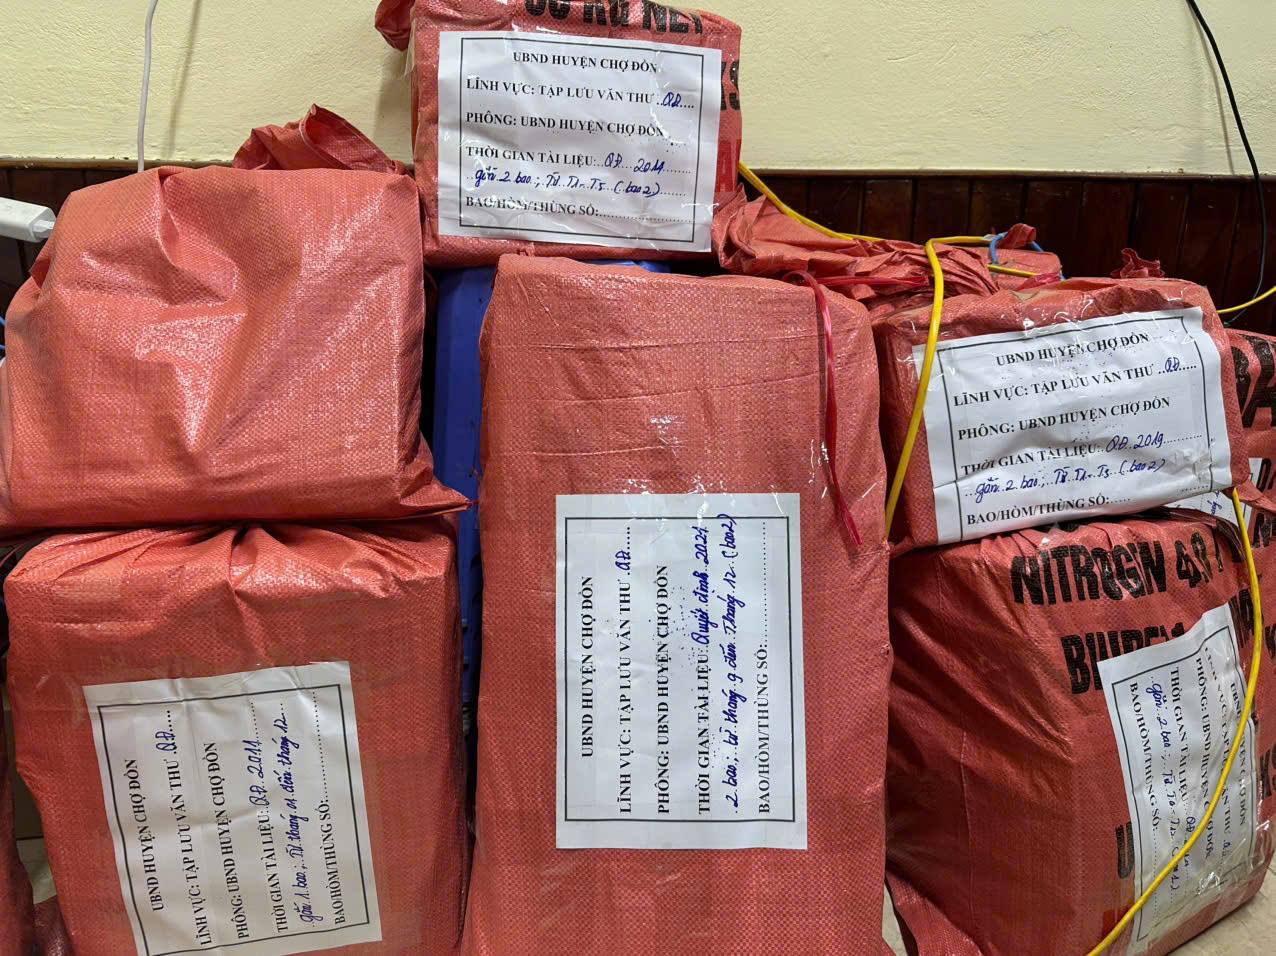 UBND HUYỆN CHỢ ĐỒN
LĨNH VỰC: TẬP LƯU VĂN THƯ ..QĐ....
PHÔNG: UBND HUYỆN CHỢ ĐỒN
THỜI GIAN TÀI LIỆU:..QĐ...2019.......
gồm 2 bao; Từ T1- T5 (bao 2)
BAO/HÒM/THÙNG SỐ:..................
UBND HUYỆN CHỢ ĐỒN
LĨNH VỰC: TẬP LƯU VĂN THƯ ..QĐ.....
PHÔNG: UBND HUYỆN CHỢ ĐỒN
THỜI GIAN TÀI LIỆU:..QĐ.2019..........
gồm 2 bao; Từ T1- T5 (bao 2)
BAO/HÒM/THÙNG SỐ:.....
UBND HUYỆN CHỢ ĐỒN
LĨNH VỰC: TẬP LƯU VĂN THƯ QĐ.......
PHÔNG: UBND HUYỆN CHỢ ĐỒN
THỜI GIAN TÀI LIỆU: Quyết định 2021
2 bao; từ tháng 9 đến Tháng 12 (bao 2)
BAO/HÒM/THÙNG SỐ:................
UBND HUYỆN CHỢ ĐỒN
LĨNH VỰC: TẬP LƯU VĂN THƯ QĐ.....
PHÔNG: UBND HUYỆN CHỢ ĐỒN
THỜI GIAN TÀI LIỆU: QĐ 2011
gồm 1 bao; Từ tháng 01 đến tháng 12
BAO/HÒM/THÙNG SỐ:............
NITROGIN
PHÔNG: UBND HUYỆN CHỢ ĐỒN
THỜI GIAN TÀI LIỆU: QĐ
gồm 2 bao; Từ
BAO/HÒM/THÙNG SỐ: